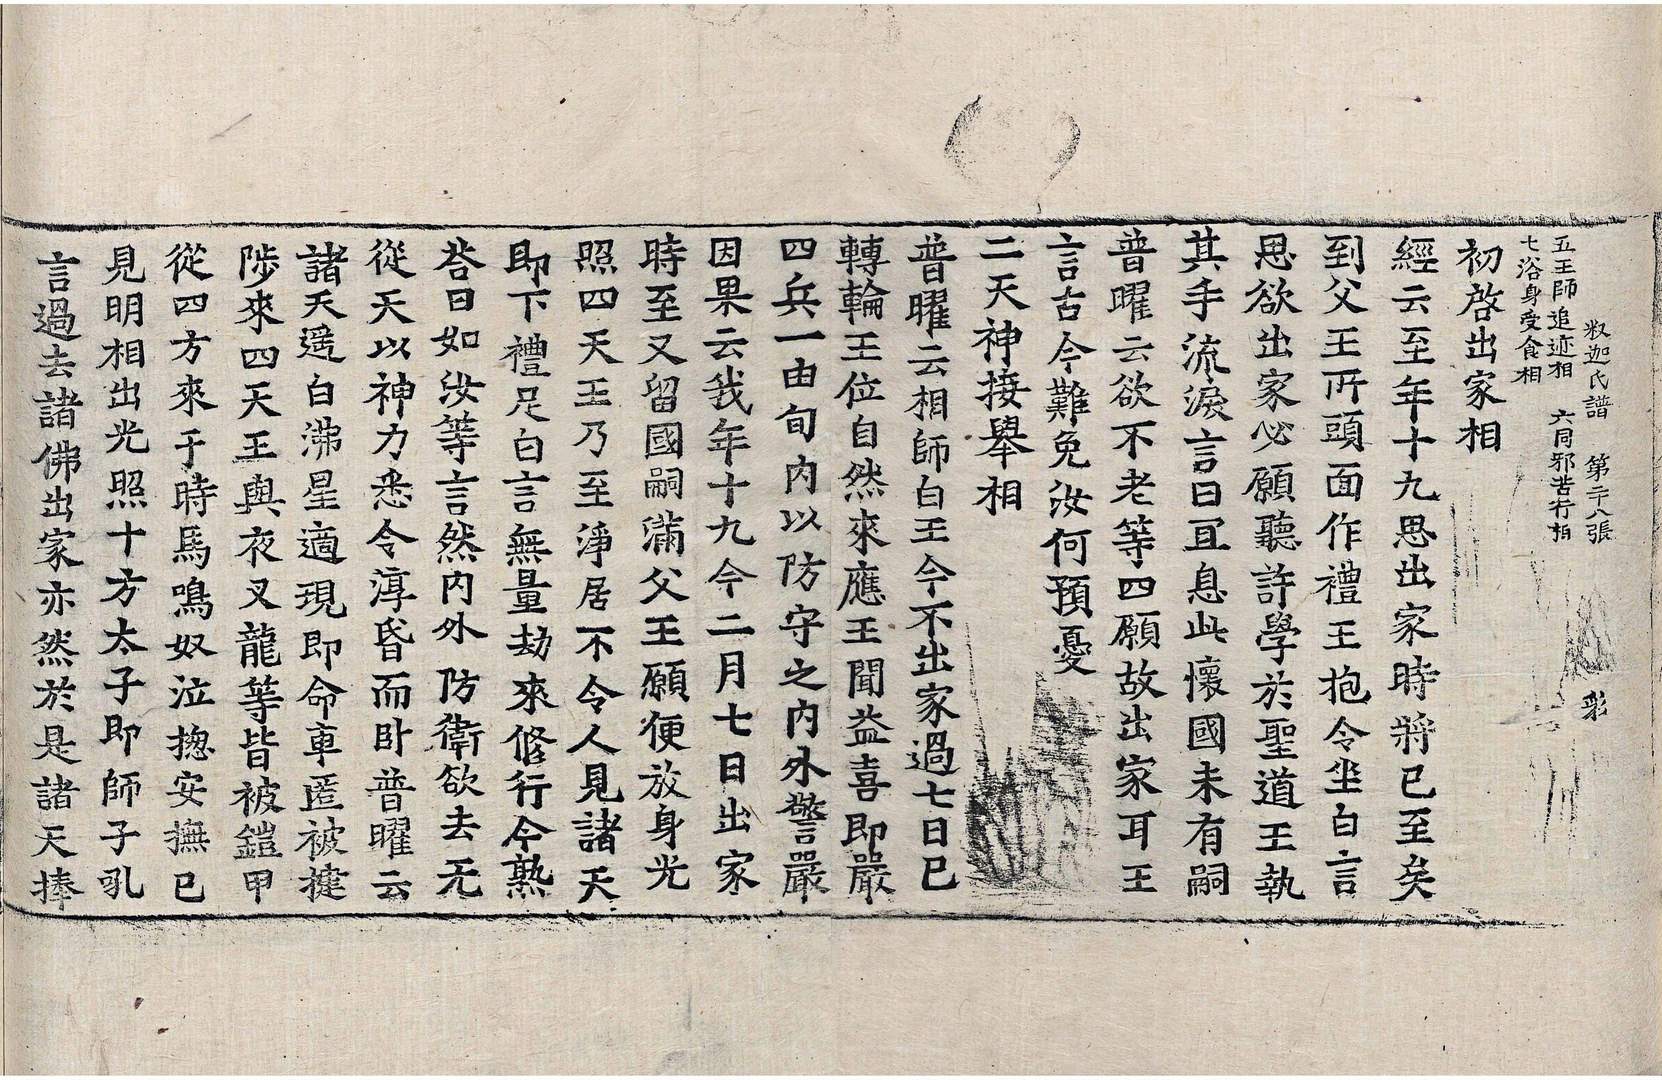 釈迦氏譜　第二十八張　彩
五王師追迹相　六同邪苦行相
七浴身受食相
初啓出家相
經云至年十九思出家時將已至矣
到父王所頭面作禮王抱令坐白言
恩欲出家必願聽許學於聖道王執
其手流淚言曰且息此懷國未有嗣
普曜云欲不老等四願故出家耳王
言古今難免汝何預憂
二天神接舉相
普曜云相師白王今不出家過七日已
轉輪王位自然來應王聞益喜即嚴
四兵一由旬內以防守之內外警嚴
因果云我年十九今二月七日出家
時至又留國嗣滿父王願便放身光
照四天王乃至淨居不令人見諸天
即下禮足白言無量劫來修行今熟
答曰如汝等言然內外防衛欲去无
從天以神力悉令淳昏而卧普曜云
諸天遥白沸星適現即命車匿被揵
陟來四天王與夜叉龍等皆被鎧甲
從四方來于時馬鳴奴泣揔安撫已
見明相出光照十方太子即師子吼
言過去諸佛出家亦然於是諸天捧